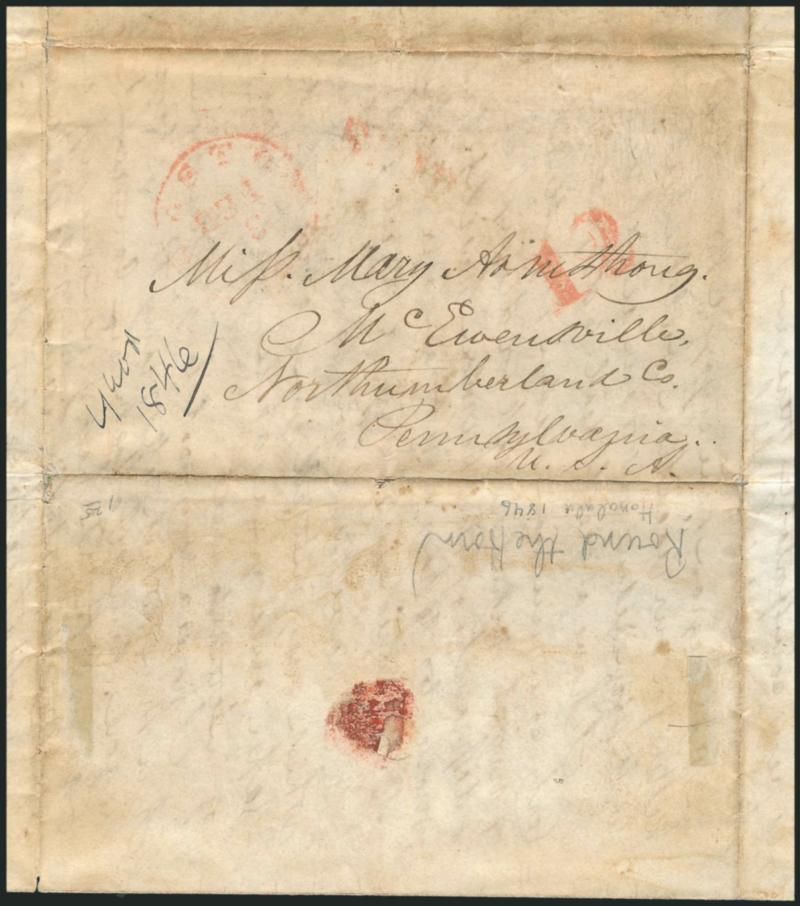 12
Miss. Mary Armstrong.
McEwensville,
Northumberland Co.
Pennsylvania.
U. S. A.
1846
Honolulu 1846
Round the Horn